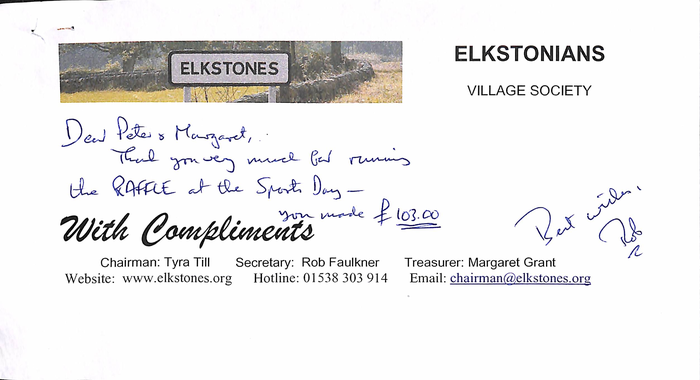 ELKSTONES
ELKSTONIANS
VILLAGE SOCIETY
Dear Peter & Margaret,
Thank you very much for running
the RAFFLE at the Sports Day —
you made £103.00
Best wishes,
Rob
With Compliments
Chairman: Tyra Till Secretary: Rob Faulkner Treasurer: Margaret Grant
Website: www.elkstones.org Hotline: 01538 303 914 Email: chairman@elkstones.org